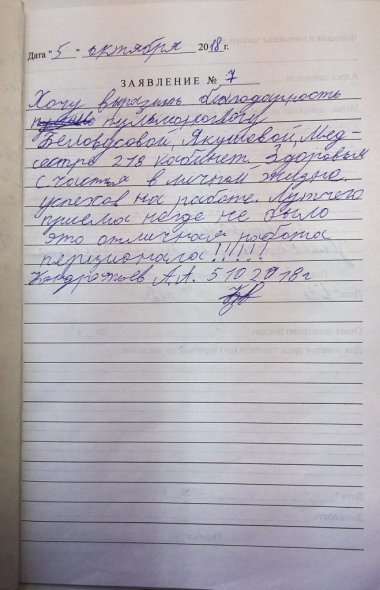 Дата "5" октября 2018 г.
ЗАЯВЛЕНИЕ № 7
Хочу выразить благодарность
пульмонологу
Белоусовой, Якушевой, Мед-
сестре 218 кабинет. Здоровья
счастья в личной жизни,
успехов на работе. Лутчего
приема негде не было
это отличная работа
перционала!!!!!!
Кондратьев А.А. 5 10 2018 г